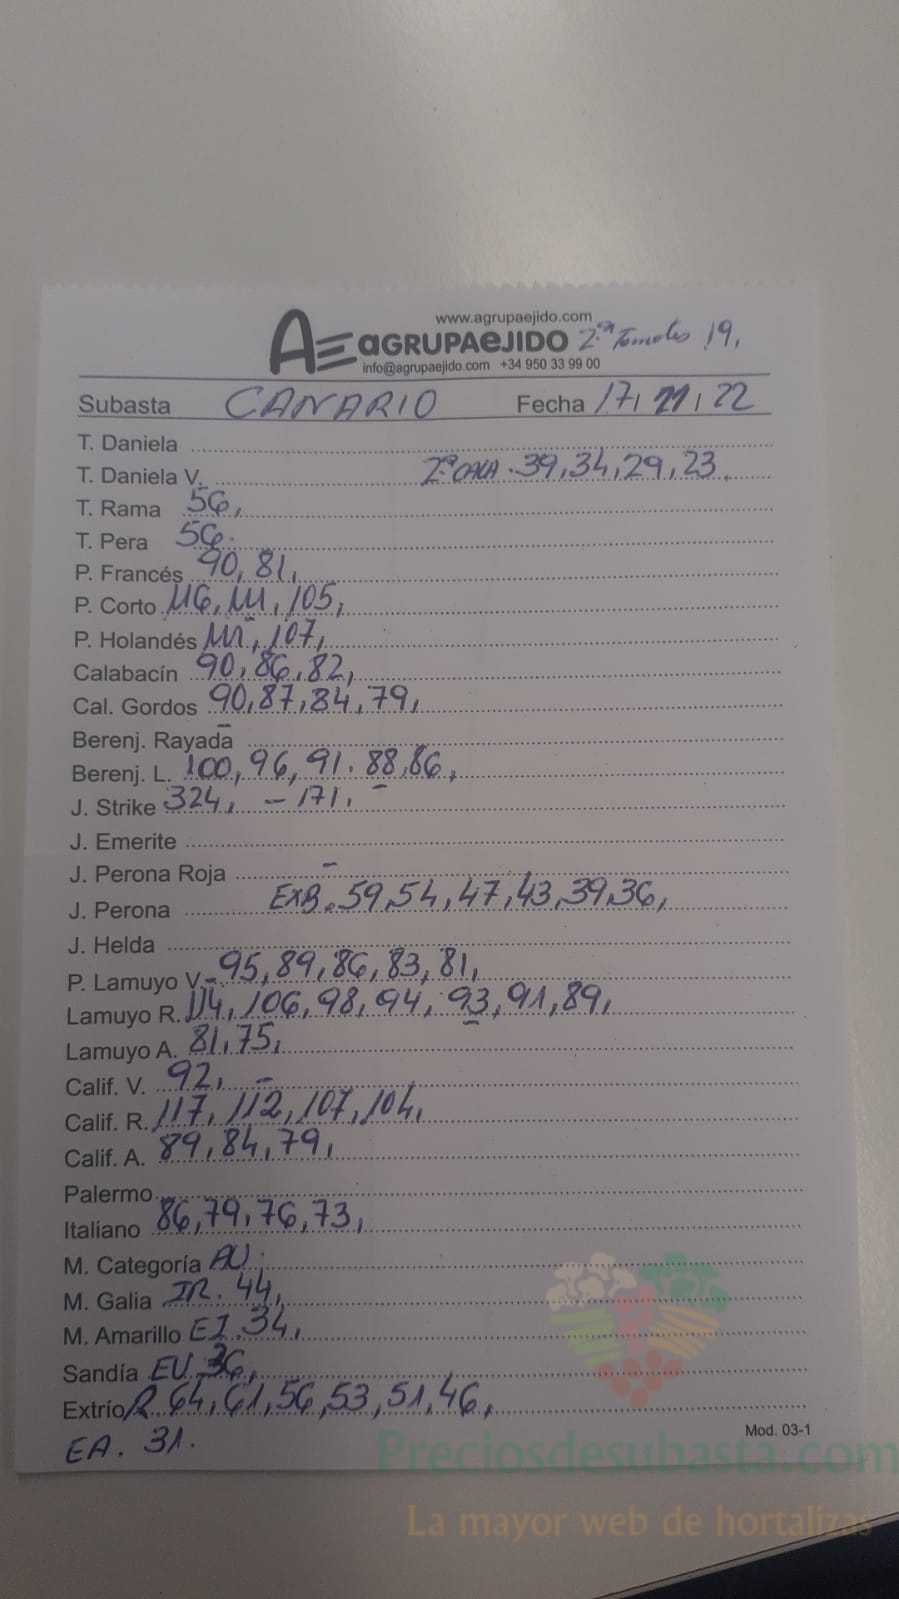 www.agrupaejido.com
AE aGRUPAeJIDO 2ª Tomates 19,
info@agrupaejido.com +34 950 33 99 00
Subasta CANARIO Fecha 17, 11, 22
T. Daniela
T. Daniela V. 2ª CALA. 39, 34, 29, 23.
T. Rama 56,
T. Pera 56.
P. Francés 90, 81,
P. Corto 116, 111, 105,
P. Holandés 111, 107,
Calabacín 90, 86, 82,
Cal. Gordos 90, 87, 84, 79,
Berenj. Rayada –
Berenj. L. 100, 96, 91. 88, 86,
J. Strike 324, – 171, –
J. Emerite
J. Perona Roja –
J. Perona EXB. 59, 54, 47, 43, 39, 36,
J. Helda
P. Lamuyo V. – 95, 89, 86, 83, 81,
Lamuyo R. 114, 106, 98, 94, 93, 91, 89,
Lamuyo A. 81, 75,
Calif. V. 92, –
Calif. R. 117, 112, 107, 104,
Calif. A. 89, 84, 79,
Palermo
Italiano 86, 79, 76, 73,
M. Categoría AU.
M. Galia IR. 44,
M. Amarillo EI. 34,
Sandía EU. 36,
Extrío R 64, 61, 56, 53, 51, 46,
EA. 31.
Mod. 03-1
Preciosdesubasta.com
La mayor web de hortalizas